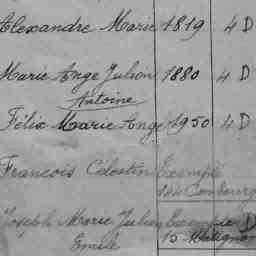 Alexandre Marie 1819 4 D
Marie Ange Julien 1880 4 D
Antoine
Félix Marie Ange 1950 4 D
Francois Célestin Exempté
144 Combourg
Joseph Marie Julien Exempté D
Emile 15 Matignon